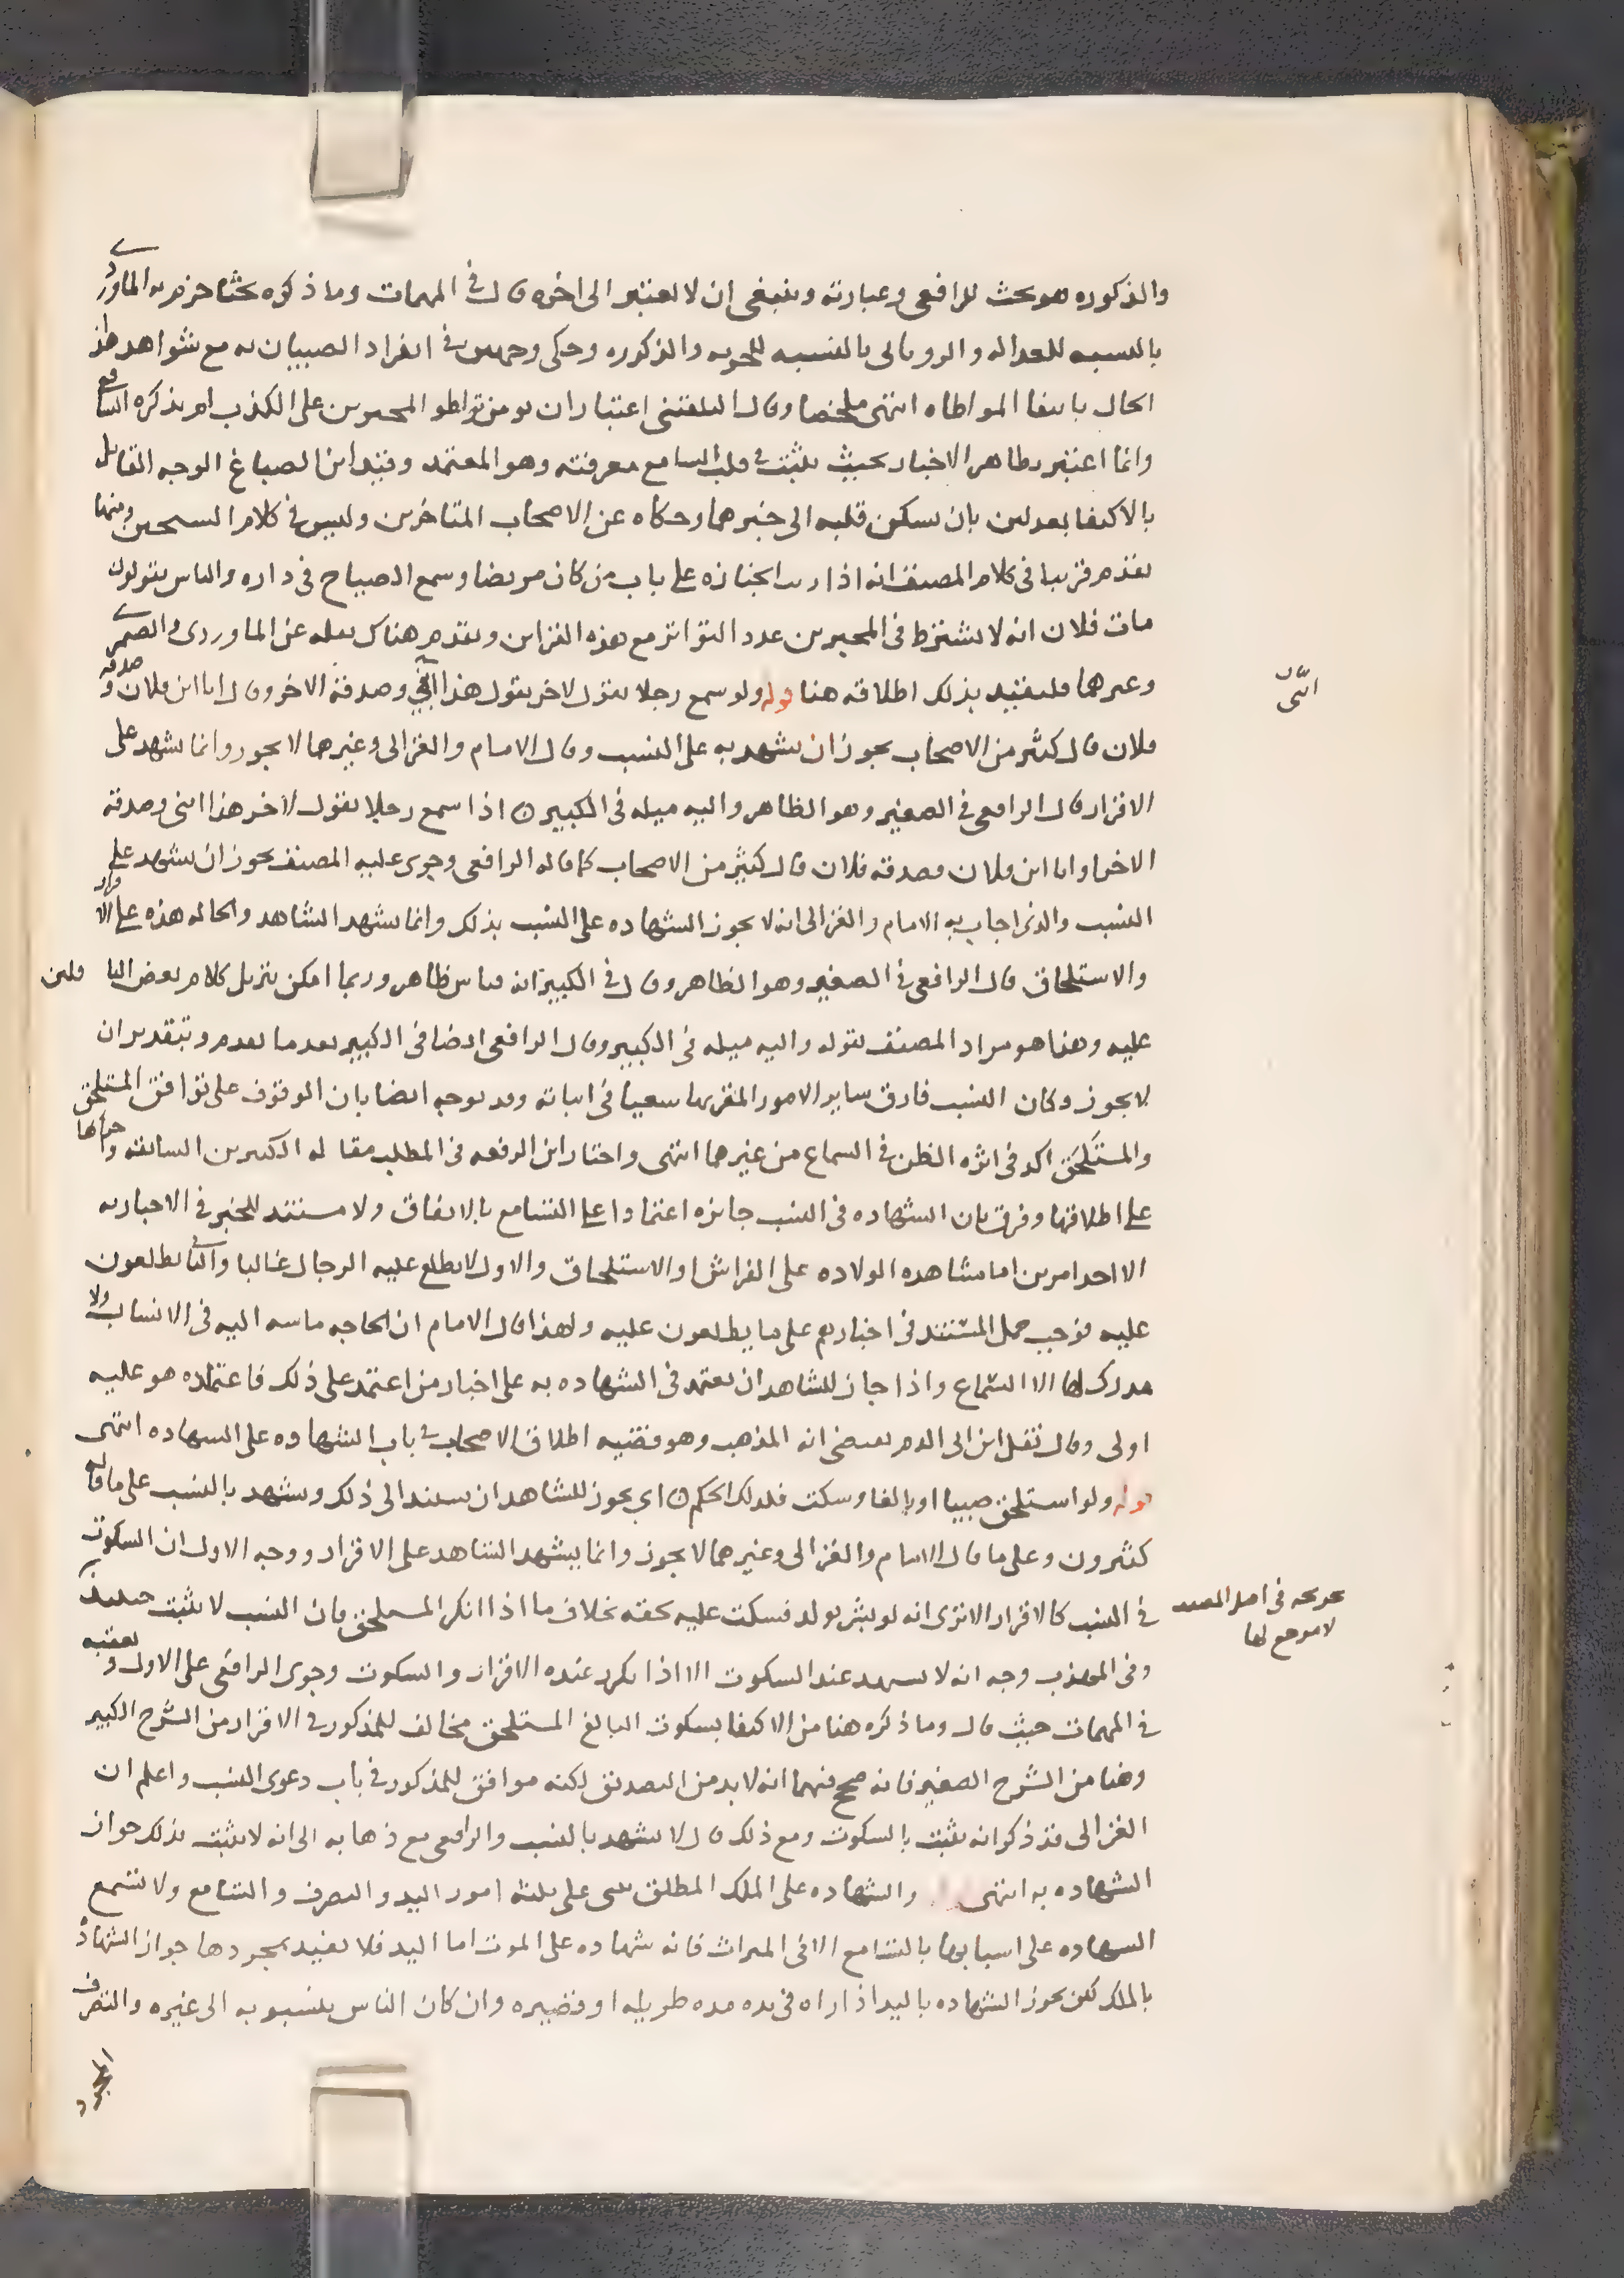 والذكوره هو بحث للرافعي وعبارته وينبغي ان لا يعتبر الى اخره قال في المهمات وما ذكره بحثا جزم به الماوردي
بالنسبه للعداله والروياني بالنسبه للحريه والذكوره وحكى وجهين في انفراد الصبيان به مع شواهد
الحال بانتفا المواطاه انتهى ملخصا وقال البلقيني اعتبار ان يومن تواطو المخبرين على الكذب لم يذكره الشافعي
وانما اعتبر تظاهر الاخبار بحيث يثبت في قلب السامع معرفته وهو المعتمد وقيد ابن الصباغ الوجه القايل
بالاكتفا بعدلين بان يسكن قلبه الى خبرهما وحكاه عن الاصحاب المتاخرين وليس في كلام الشيخين ومنها
تقدم قريبا في كلام المصنف انه اذا رات الجنازه على باب من كان مريضا وسمع الصياح في داره والناس يقولون
مات فلان انه لا يشترط في المخبرين عدد التواتر مع هذه القراين وتقدم هناك نقله عن الماوردي والصيمري
وغيرهما فليقيد بذلك اطلاقه هنا قوله ولو سمع رجلا يقول لاخر يقول هذا ابني وصدقه الاخر وقال انا ابن فلان وصدقه
فلان قال كثير من الاصحاب يجوز ان يشهد به على النسب وقال الامام والغزالي وغيرهما لا يجوز وانما يشهد على
الاقرار قال الرافعي في الصغير وهو الظاهر واليه ميله في الكبير ه اذا سمع رجلا يقول لاخر هذا ابني وصدقه
الاخر او انا ابن فلان وصدقه فلان قال كثير من الاصحاب كما قاله الرافعي وجرى عليه المصنف يجوز ان يشهد على
النسب والذى اجاب به الامام والغزالي انه لا يجوز الشهاده على النسب بذلك وانما يشهد الشاهد والحاله هذه على الاقرار
والاستلحاق قال الرافعي في الصغير وهو الظاهر وقال في الكبير انه قياس ظاهر وربما امكن تنزيل كلام بعض القايلين
عليه وهذا هو مراد المصنف بقوله واليه ميله في الكبير وقال الرافعي ايضا في الكبير بعد ما تقدم وبتقدير ان
لا يجوز وكان النسب فارق ساير الامور المقر بها سعيا في اثباته وقد يوجه ايضا بان الوقوف على توافق المستلحق
والمستلحَق اكد في اثره الظن في السماع من غيرهما انتهى واختار ابن الرفعه في المطلب مقاله الكثيرين السابقه واجراها
على اطلاقها وفرق بان الشهاده في النسب جايزه اعتمادا على التسامع بالاتفاق ولا مستند للخبر في الاخبار به
الا احد امرين اما مشاهده الولاده على الفراش او الاستلحاق والاول لا يطلع عليه الرجال غالبا والثاني يطلعون
عليه فوجب حمل المستند في اخبارهم على ما يطلعون عليه ولهذا قال الامام ان الحاجه ماسه اليه في الانساب ولا
مدرك لها الا السماع واذا جاز للشاهد ان يعتمد في الشهاده به على اخبار من اعتمد على ذلك فاعتماده هو عليه
اولى وقال نقل ابن ابي الدم يقتضى انه المذهب وهو قضيه اطلاق الاصحاب في باب الشهاده على الشهاده انتهى
قوله ولو استلحق صبيا او بالغا وسكت فلذلك الحكم ه اي يجوز للشاهد ان يستند الى ذلك ويشهد بالنسب على ما قاله
كثيرون وعلى ما قال الامام والغزالي وغيرهما لا يجوز وانما يشهد الشاهد على الاقرار ووجه الاول ان السكوت
في النسب كالاقرار الا ترى انه لو بشر بولد فسكت عليه لحقه بخلاف ما اذا انكر المستلحق فان النسب لا يثبت حينيذ
وفي المهذب وجه انه لا يشهد عند السكوت الا اذا تكرر عنده الاقرار والسكوت وجرى الرافعي على الاول وتعقبه
في المهمات حيث قال وما ذكره هنا من الاكتفا بسكوت البالغ المستلحق مخالف للمذكور في الاقرار من الشرح الكبير
وهنا من الشرح الصغير فانه صحح فيهما انه لا بد من التصديق لكنه موافق للمذكور في باب دعوى النسب واعلم ان
الغزالي قد ذكر انه يثبت بالسكوت ومع ذلك قال لا يشهد بالنسب والرافعي مع ذهابه الى انه لا يثبت بذلك جواز
الشهاده به انتهى والشهاده على الملك المطلق تبنى على ثلثه امور اليد والتصرف والتسامع ولا تسمع
الشهاده على اسبابها بالتسامع الا في الميراث فانه شهاده على الموت اما اليد فلا تفيد بمجردها جواز الشهاده
بالملك لكن يجوز الشهاده باليد اذا راه في يده مده طويله او قصيره وان كان الناس ينسبونه الى غيره والتصرف
المجرد
انتهى
لا موضع لها